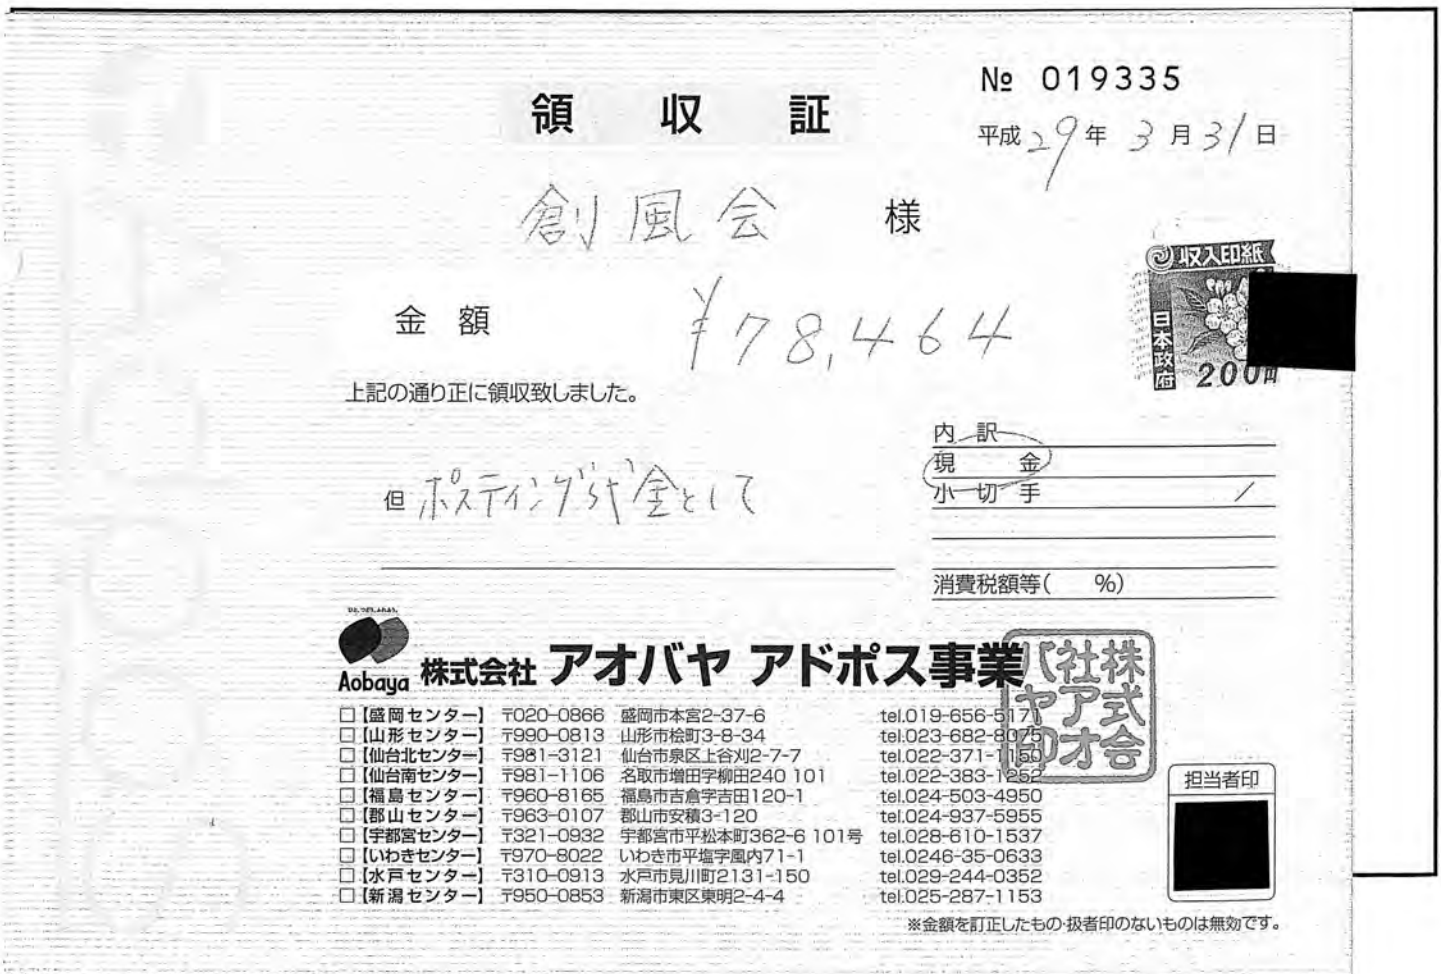 № 019335
領収証
平成 29年 3月 31日
創風会 様
収入印紙
日本政府
200円
金額 ¥78,464
上記の通り正に領収致しました。
内訳
現金
小切手
但 ポスティング代金として
消費税額等( %)
ひと、つどう、ふれあう。
Aobaya
株式会社 アオバヤ アドポス事業
株式会社アオバヤ印
□【盛岡センター】 〒020-0866 盛岡市本宮2-37-6 tel.019-656-5171
□【山形センター】 〒990-0813 山形市桧町3-8-34 tel.023-682-8075
□【仙台北センター】 〒981-3121 仙台市泉区上谷刈2-7-7 tel.022-371-1150
□【仙台南センター】 〒981-1106 名取市増田字柳田240 101 tel.022-383-1252
□【福島センター】 〒960-8165 福島市吉倉字吉田120-1 tel.024-503-4950
□【郡山センター】 〒963-0107 郡山市安積3-120 tel.024-937-5955
□【宇都宮センター】 〒321-0932 宇都宮市平松本町362-6 101号 tel.028-610-1537
□【いわきセンター】 〒970-8022 いわき市平塩字風内71-1 tel.0246-35-0633
□【水戸センター】 〒310-0913 水戸市見川町2131-150 tel.029-244-0352
□【新潟センター】 〒950-0853 新潟市東区東明2-4-4 tel.025-287-1153
担当者印
※金額を訂正したもの・扱者印のないものは無効です。